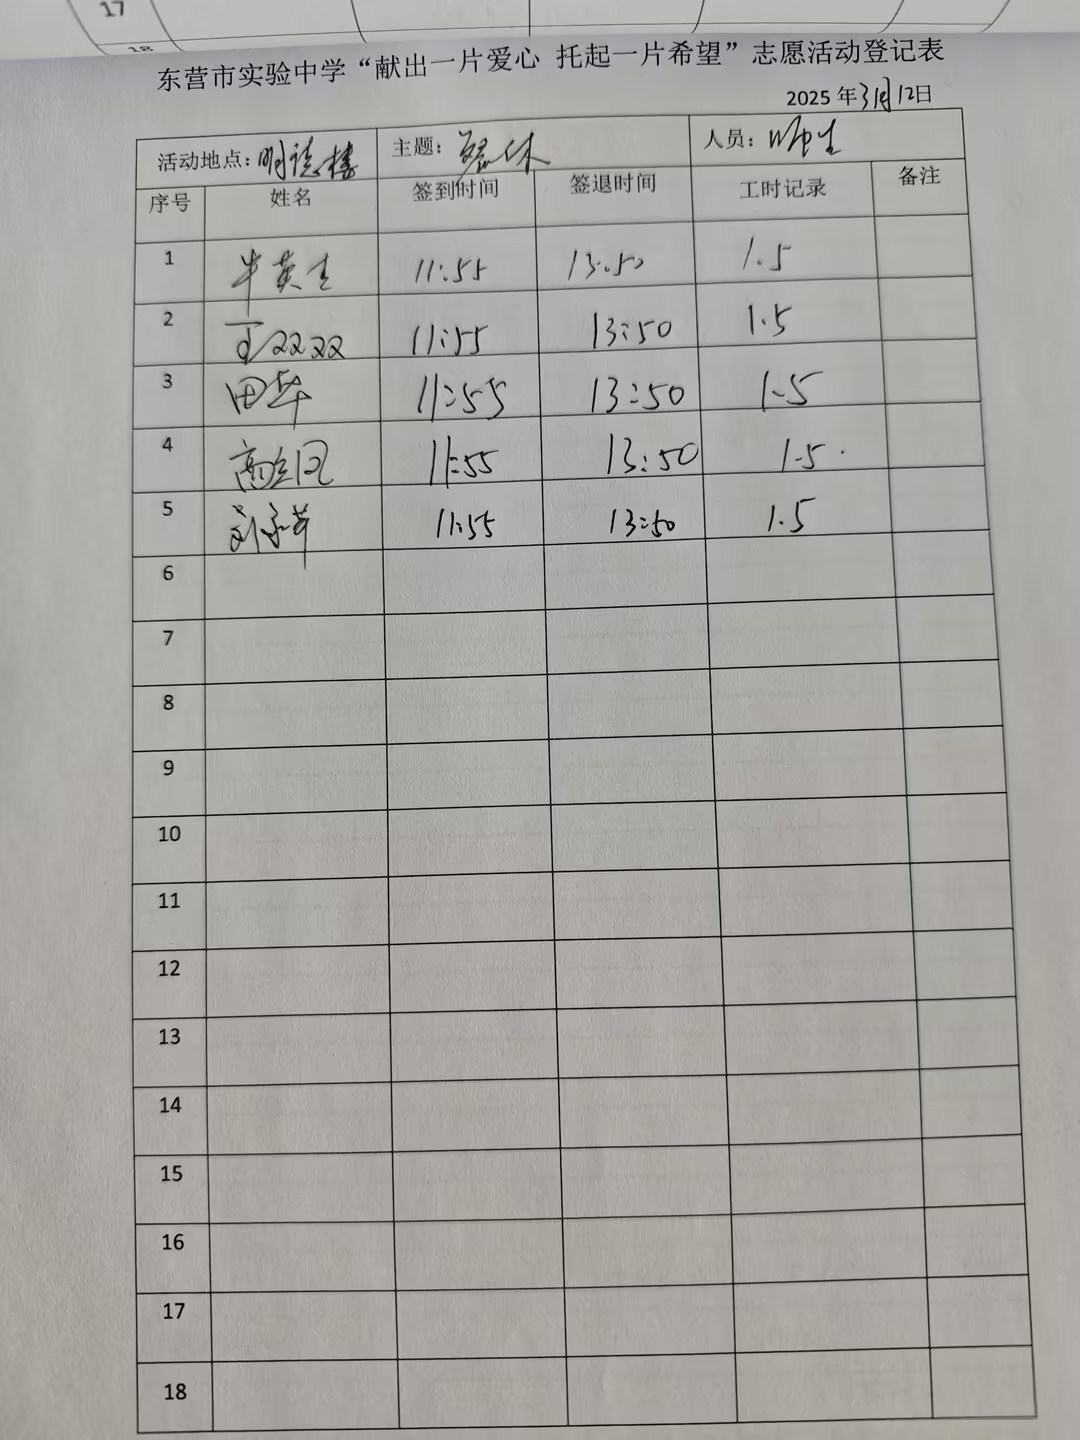 17
18
东营市实验中学“献出一片爱心 托起一片希望”志愿活动登记表
2025 年3月12日
活动地点：明德楼 主题： 午休 人员：师生
序号 姓名 签到时间 签退时间 工时记录 备注
1 11:55 13:50 1.5
2 11:55 13:50 1.5
3 田华 11:55 13:50 1.5
4 11:55 13:50 1.5
5 11:55 13:50 1.5
6
7
8
9
10
11
12
13
14
15
16
17
18